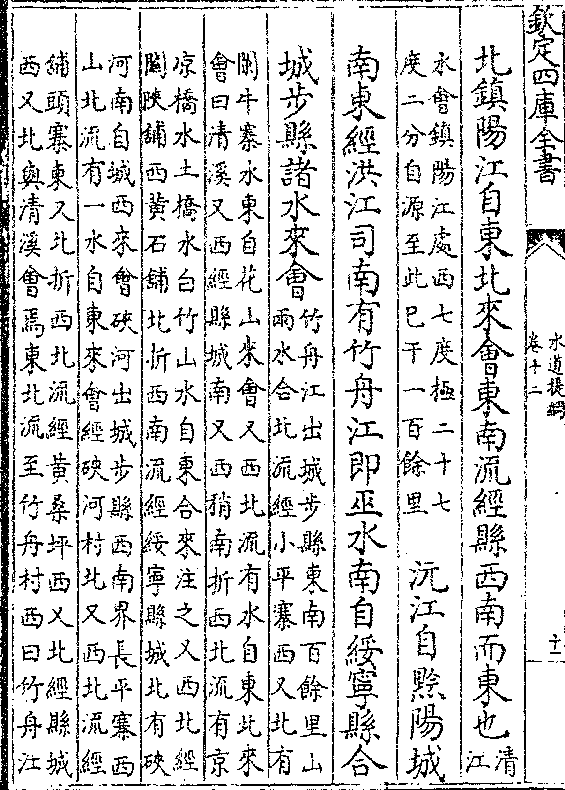 欽定四庫全書
水道提綱
卷十二
十二
北鎮陽江自東北來會東南流經縣西南而東也清江
水會鎮陽江處西七度極二十七
度二分自源至此已千一百餘里
沅江自黔陽城
南東經洪江司南有竹舟江即巫水南自綏寧縣合
城步縣諸水來會竹舟江出城步縣東南百餘里山
兩水合北流經小平寨西又北有
閑牛寨水東自花山來會又西北流有水自東北來
會曰清溪又西經縣城南又西稍南折西北流有京
凉橋水土橋水白竹山水自東合來注之又西北經
關峽舖西黃石舖北折西南流經綏寧縣城北有硤
河南自城西來會硤河出城步縣西南界長平寨西
山北流有一水自東來會經硤河村北又西北流經
舖頭寨東又北折西北流經黃桑坪西又北經縣城
西又北與清溪會焉東北流至竹舟村西曰竹舟江